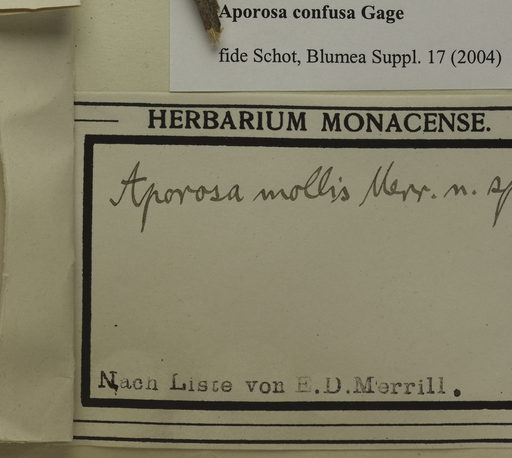 Aporosa confusa Gage
fide Schot, Blumea Suppl. 17 (2004)
HERBARIUM MONACENSE.
Aporosa mollis Merr. n. sp
Nach Liste von E.D.Merrill.